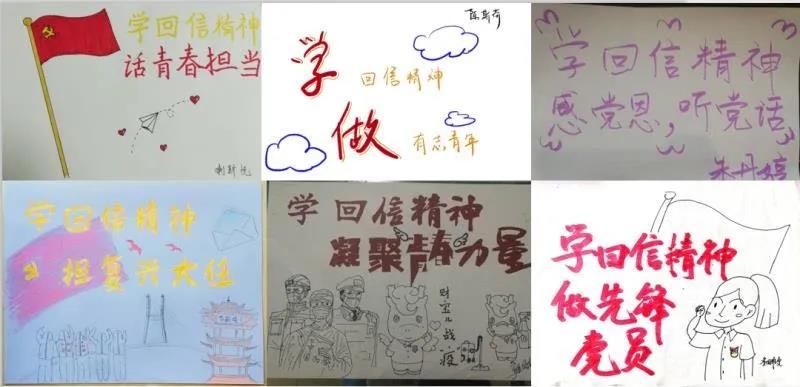 学回信精神
话青春担当
学
回信精神
做
有志青年
学回信精神
感党恩,听党话
朱丹婷
学回信精神
担复兴大任
学回信精神
凝聚青春力量
财宝儿战疫
学回信精神
做先锋
党员